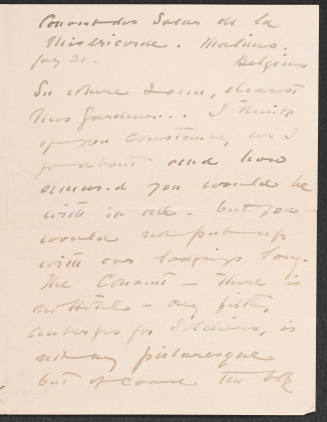 Couvent des Soeurs de la
Misericorde. Malines.
July 21. Belgium
See where I am, dearest
Mrs Gardner... I think
of you constantly, as I
go about and how
amused you would be
with it all - but you
would not put up
with our lodgings long.
The Convent - there is
no Hotel - only filthy
auberges for Soldiers, is
very picturesque
but of course the